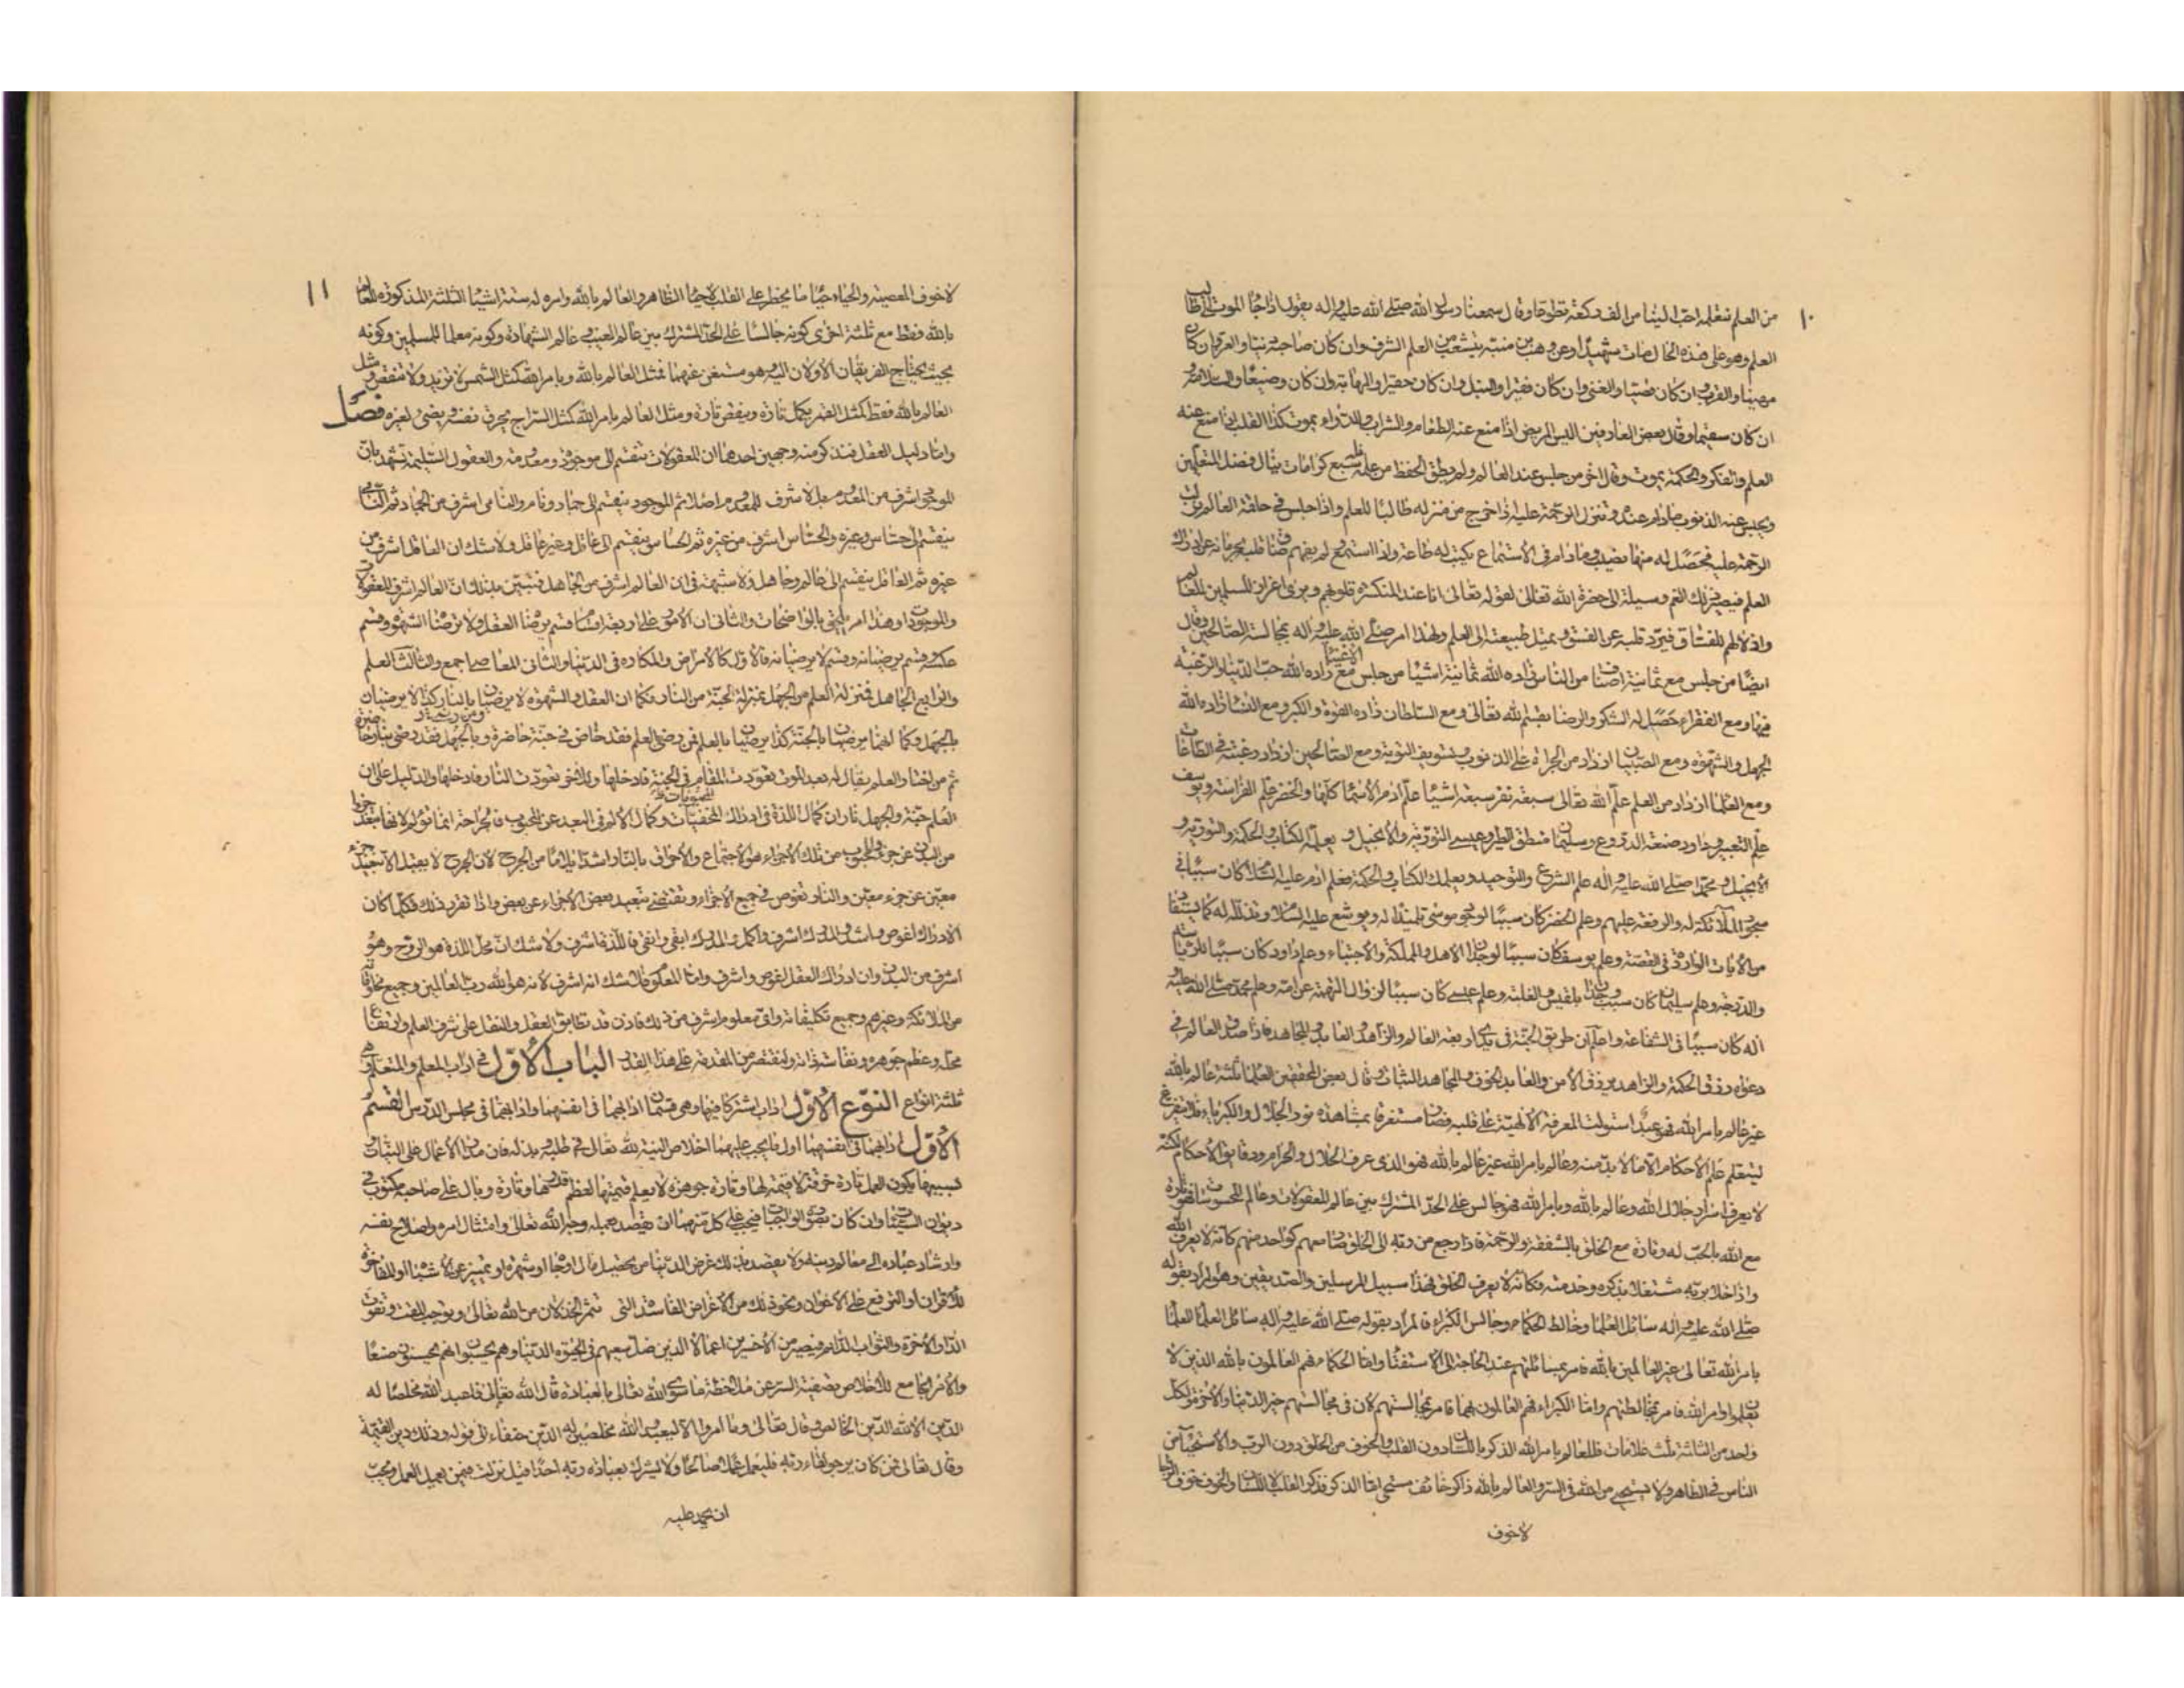 ١٠
من العلم نتعلمه احب الينا من الف ركعة تطوعا وقال سمعنا رسول الله صلى الله عليه واله يقول اذا جاء الموت طالب
العلم وهو على هذه الحال مات شهيدا وعن وهب بن منبه يتشعب من العلم الشرف وان كان صاحبه دنيا والعز وان كان
مهينا والقرب وان كان قصيا والغنى وان كان فقيرا والنبل وان كان حقيرا والمهابة وان كان وضيعا والسلامة و
ان كان سقيما وقال بعض العارفين اليس المريض اذا منع عنه الطعام والشراب والدواء يموت كذا القلب اذا منع عنه
العلم والفكر والحكمة يموت وقال اخر من جلس عند العالم ولم يطق الحفظ من علمه فله سبع كرامات ينال فضل المتعلمين
ويحبس عنه الذنوب ما دام عنده وتنزل الرحمة عليه اذا خرج من منزله طالبا للعلم واذا جلس في حلقة العالم نزلت
الرحمة عليه فحصل له منها نصيب وما دام في الاستماع يكتب له طاعة واذا استمع لم يفهم ضاق قلبه بحرمانه عن ادراك
العلم فيصير ذلك الغم وسيلة الى حضرة الله تعالى لقوله تعالى انا عند المنكسرة قلوبهم ويرى اعزاز المسلمين للعالم
واذلالهم للفساق فيرد قلبه عن الفسق ويميل طبيعته الى العلم ولهذا امر صلى الله عليه واله بمجالسة الصالحين وقال
ايضا من جلس مع ثمانية اصناف من الناس زاده الله ثمانية اشياء من جلس مع الاغنياء زاده الله حب الدنيا والرغبة
فيها ومع الفقراء حصل له الشكر والرضا بقسم الله تعالى ومع السلطان زاده القسوة والكبر ومع النساء زاده الله
الجهل والشهوة ومع الصبيان ازداد من الجراة على الذنوب وتسويف التوبة ومع الصالحين ازداد رغبة في الطاعات
ومع العلماء ازداد من العلم علم الله تعالى سبعة نفر سبعة اشياء علم ادم الاسماء كلها والخضر علم الفراسة ويوسف
علم التعبير وداود صنعة الدروع وسليمان منطق الطير وعيسى التورية والانجيل ويعلمه الكتاب والحكمة والتورية و
الانجيل ومحمدا صلى الله عليه واله علم الشرع والتوحيد ويعلمك الكتاب والحكمة فعلم ادم عليه السلام كان سببا في
سجود الملائكة له والرفعة عليهم وعلم الخضر كان سببا لوجود موسى تلميذا له ويوشع عليه السلام وتذلله له كما يستفاد
من الايات الواردة في القصة وعلم يوسف كان سببا لوجدان الاهل والمملكة والاجتباء وعلم داود كان سببا للرياسة
والدرجة وعلم سليمان كان سببا لوجدان بلقيس والغلبة وعلم عيسى كان سببا لزوال التهمة عن امه وعلم محمد صلى الله عليه و
اله كان سببا في الشفاعة واعلم ان طريق الجنة في يد اربعة العالم والزاهد والعابد والمجاهد فاذا صدق العالم في
دعواه رزق الحكمة والزاهد يرزق الامن والعابد الخوف والمجاهد الثناء وقال بعض المحققين العلماء ثلثة عالم بالله
غير عالم بامر الله فهو عبد استولت المعرفة الالهية على قلبه فصار مستغرقا بمشاهدة نور الجلال والكبرياء فلا يتفرغ
ليتعلم علم الاحكام الا ما لا بد منه وعالم بامر الله غير عالم بالله فهو الذي عرف الحلال والحرام ودقايق الاحكام لكنه
لا يعرف اسرار جلال الله وعالم بالله وبامر الله فهو جالس على الحد المشترك بين عالم المعقولات وعالم المحسوسات فهو تارة
مع الله بالحب له وتارة مع الخلق بالشفقة والرحمة فاذا رجع من ربه الى الخلق صار معهم كواحد منهم كانه لا يعرف الله
واذا خلا بربه مشتغلا بذكره وخدمته فكانه لا يعرف الخلق فهذا سبيل المرسلين والصديقين وهو المراد بقوله
صلى الله عليه واله سائل العلماء وخالط الحكماء وجالس الكبراء فالمراد بقوله صلى الله عليه واله سائل العلماء العلماء
بامر الله تعالى غير العالمين بالله فامر بمسائلتهم عند الحاجة الى الاستفتاء واما الحكماء فهم العالمون بالله الذين لا
يعلمون اوامر الله فامر بمخالطتهم واما الكبراء فهم العالمون بهما فامر بمجالستهم لان في مجالستهم خير الدنيا والاخرة ولكل
واحد من الثلثة ثلث علامات فللعالم بامر الله الذكر باللسان دون القلب والخوف من الخلق دون الرب والاستحياء من
الناس في الظاهر ولا يستحيي من الله في السر والعالم بالله ذاكر خائف مستحي اما الذكر فذكر القلب لا اللسان والخوف خوف الرجاء
لا خوف
١١
لا خوف المعصية والحياء حياء ما يخطر على القلب لا حياء الظاهر والعالم بالله وامره له ستة اشياء الثلثة المذكورة للعالم
بالله فقط مع ثلثة اخرى كونه جالسا على الحد المشترك بين عالم الغيب وعالم الشهادة وكونه معلما للمسلمين وكونه
بحيث يحتاج الفريقان الاولان اليه وهو مستغن عنهما فمثل العالم بالله وبامر الله كمثل الشمس لا تزيد ولا تنقص ومثل
العالم بالله فقط كمثل القمر يكمل تارة وينقص تارة ومثل العالم بامر الله كمثل السراج يحرق نفسه ويضيء لغيره فصل
واما دليل العقل فنذكر منه وجهين احدهما ان المعقولات تنقسم الى موجودة ومعدومة والعقول السليمة تشهد بان
الموجود اشرف من المعدوم بل لا شرف للمعدوم اصلا ثم الموجود ينقسم الى جماد ونام والنامي اشرف من الجماد ثم النامي
ينقسم الى حساس وغيره والحساس اشرف من غيره ثم الحساس ينقسم الى عاقل وغير عاقل ولا شك ان العاقل اشرف من
غيره ثم العاقل ينقسم الى عالم وجاهل ولا شبهة في ان العالم اشرف من الجاهل فتبين بذلك ان العالم اشرف المعقولات
والموجودات وهذا امر يلحق بالواضحات والثاني ان الامور على اربعة اقسام قسم يرضاه العقل ولا ترضاه الشهوة وقسم
عكسه وقسم يرضيانه وقسم لا يرضيانه فالاول كالامراض والمكاره في الدنيا والثاني المعاصي اجمع والثالث العلم
والرابع الجهل فمنزلة العلم من الجهل بمنزلة الجنة من النار فكما ان العقل والشهوة لا يرضيان بالنار كذا لا يرضيان
بالجهل وكما انهما يرضيان بالجنة كذا يرضيان بالعلم فمن رضي العلم فقد خاض في جنة حاضرة ومن رضي بالجهل فقد رضي بنار حاضرة
ثم من اختار العلم يقال له بعد الموت تعودت المقام في الجنة فادخلها وللاخر تعودت النار فادخلها والدليل على ان
العلم جنة والجهل نار ان كمال اللذة في ادراك المحبوبات وكمال الالم في البعد عن المحبوب فالجراحة انما تؤلم لانها تبعد جزءا
من البدن عن جزء والمحبوب من تلك الاجزاء هو الاجتماع والاحراق بالنار اشد ايلاما من الجرح لان الجرح لا يفيد الا تبعيد جزء
معين عن جزء معين والنار تغوص في جميع الاجزاء وتقتضي تبعيد بعض الاجزاء عن بعض فاذا تقرر ذلك فكلما كان
الادراك اغوص واشد والمدرك اشرف واكمل والمدرك ابقى وانقى فاللذة اشرف ولا شك ان محل اللذة هو الروح وهو
اشرف من البدن وان ادراك العقل اغوص واشرف واما المعلوم فلا شك انه اشرف لانه هو الله رب العالمين وجميع مخلوقاته
من الملائكة وغيرهم وجميع تكليفاته واي معلوم اشرف من ذلك فاذن قد تطابق العقل والنقل على شرف العلم وارتفاع
محله وعظم جوهره ونفاسة ذاته ولنقتصر من المقدمة على هذا القدر الباب الاول في اداب المعلم والمتعلم وهي
ثلثة انواع النوع الاول اداب اشتركا فيها وهي قسمان ادابهما في انفسهما وادابهما في مجلس الدرس القسم
الاول ادابهما في انفسهما اول ما يجب عليهما اخلاص النية لله تعالى في طلبه وبذله فان مدار الاعمال على النيات و
بسببها يكون العمل تارة خزفة لا قيمة لها وتارة جوهرة لا يعلم قيمتها لعظم قدرها وتارة وبال على صاحبه مكتوب في
ديوان السيئات وان كان بصورة الواجبات فيجب على كل منهما ان يقصد بعمله وجه الله تعالى وامتثال امره واصلاح نفسه
وارشاد عباده الى معالم دينه ولا يقصد بذلك غرض الدنيا من تحصيل مال او جاه او شهرة او تميز عن الاشباه او المفاخرة
للاقران او الترفع على الاخوان ونحو ذلك من الاغراض الفاسدة التي تثمر الخذلان من الله تعالى وتوجب المقت وتفوت
الدار الاخرة والثواب الدائم فيصير من الاخسرين اعمالا الذين ضل سعيهم في الحيوة الدنيا وهم يحسبون انهم يحسنون صنعا
والامر الجامع للاخلاص تصفية السر عن ملاحظة ما سوى الله تعالى بالعبادة قال الله تعالى فاعبد الله مخلصا له
الدين الا لله الدين الخالص وقال تعالى وما امروا الا ليعبدوا الله مخلصين له الدين حنفاء الى قوله وذلك دين القيمة
وقال تعالى فمن كان يرجو لقاء ربه فليعمل عملا صالحا ولا يشرك بعبادة ربه احدا قيل نزلت فيمن يعمل العمل ويحب
ان يحمد عليه